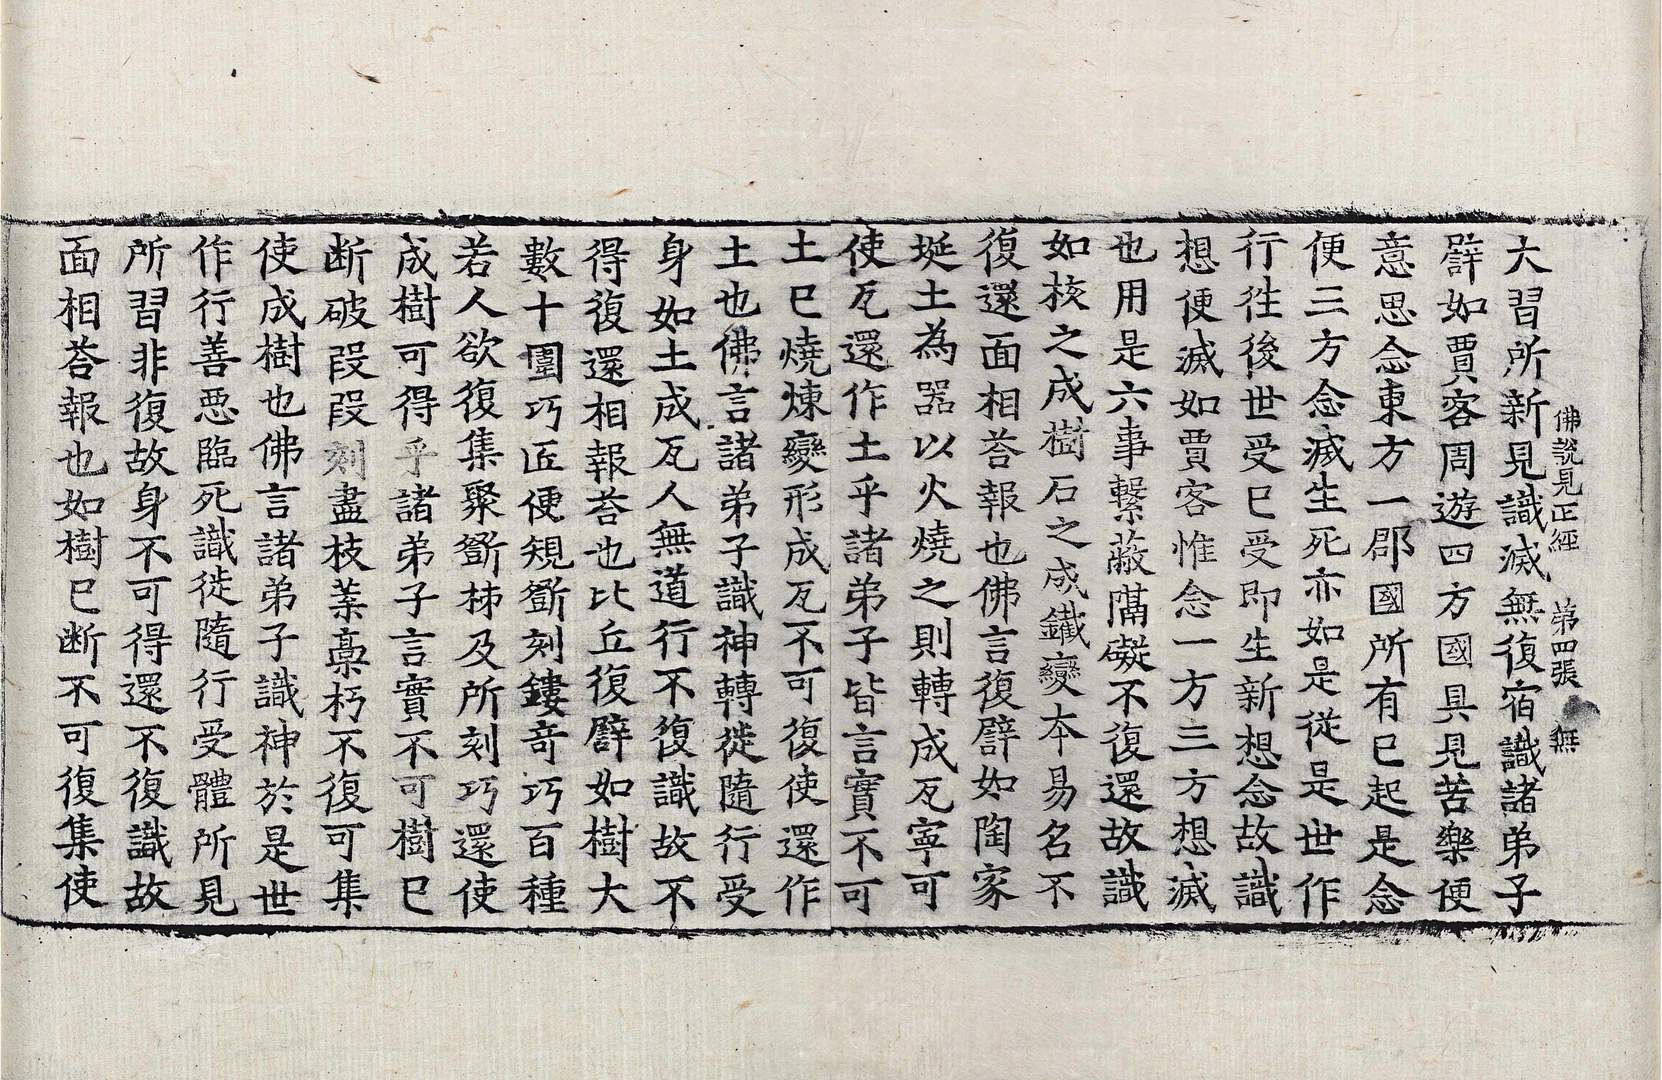 佛說見正經 第四張 無
大習所新見識滅無復宿識諸弟子
譬如賈客周遊四方國具見苦樂便
意思念東方一郡國所有已起是念
便三方念滅生死亦如是從是世作
行徃後世受已受即生新想念故識
想便滅如賈客惟念一方三方想滅
也用是六事繫蔽隔礙不復還故識
如核之成樹石之成鐵變本易名不
復還面相荅報也佛言復譬如陶家
埏土為器以火燒之則轉成瓦寧可
使瓦還作土乎諸弟子皆言實不可
土已燒煉變形成瓦不可復使還作
土也佛言諸弟子識神轉徙隨行受
身如土成瓦人無道行不復識故不
得復還相報荅也比丘復譬如樹大
數十圍巧匠便規斵刻鏤竒巧百種
若人欲復集聚斵柹及所刻巧還使
成樹可得乎諸弟子言實不可樹已
断破段段刻盡枝葉槀朽不復可集
使成樹也佛言諸弟子識神於是世
作行善惡臨死識徙隨行受體所見
所習非復故身不可得還不復識故
面相荅報也如樹已断不可復集使